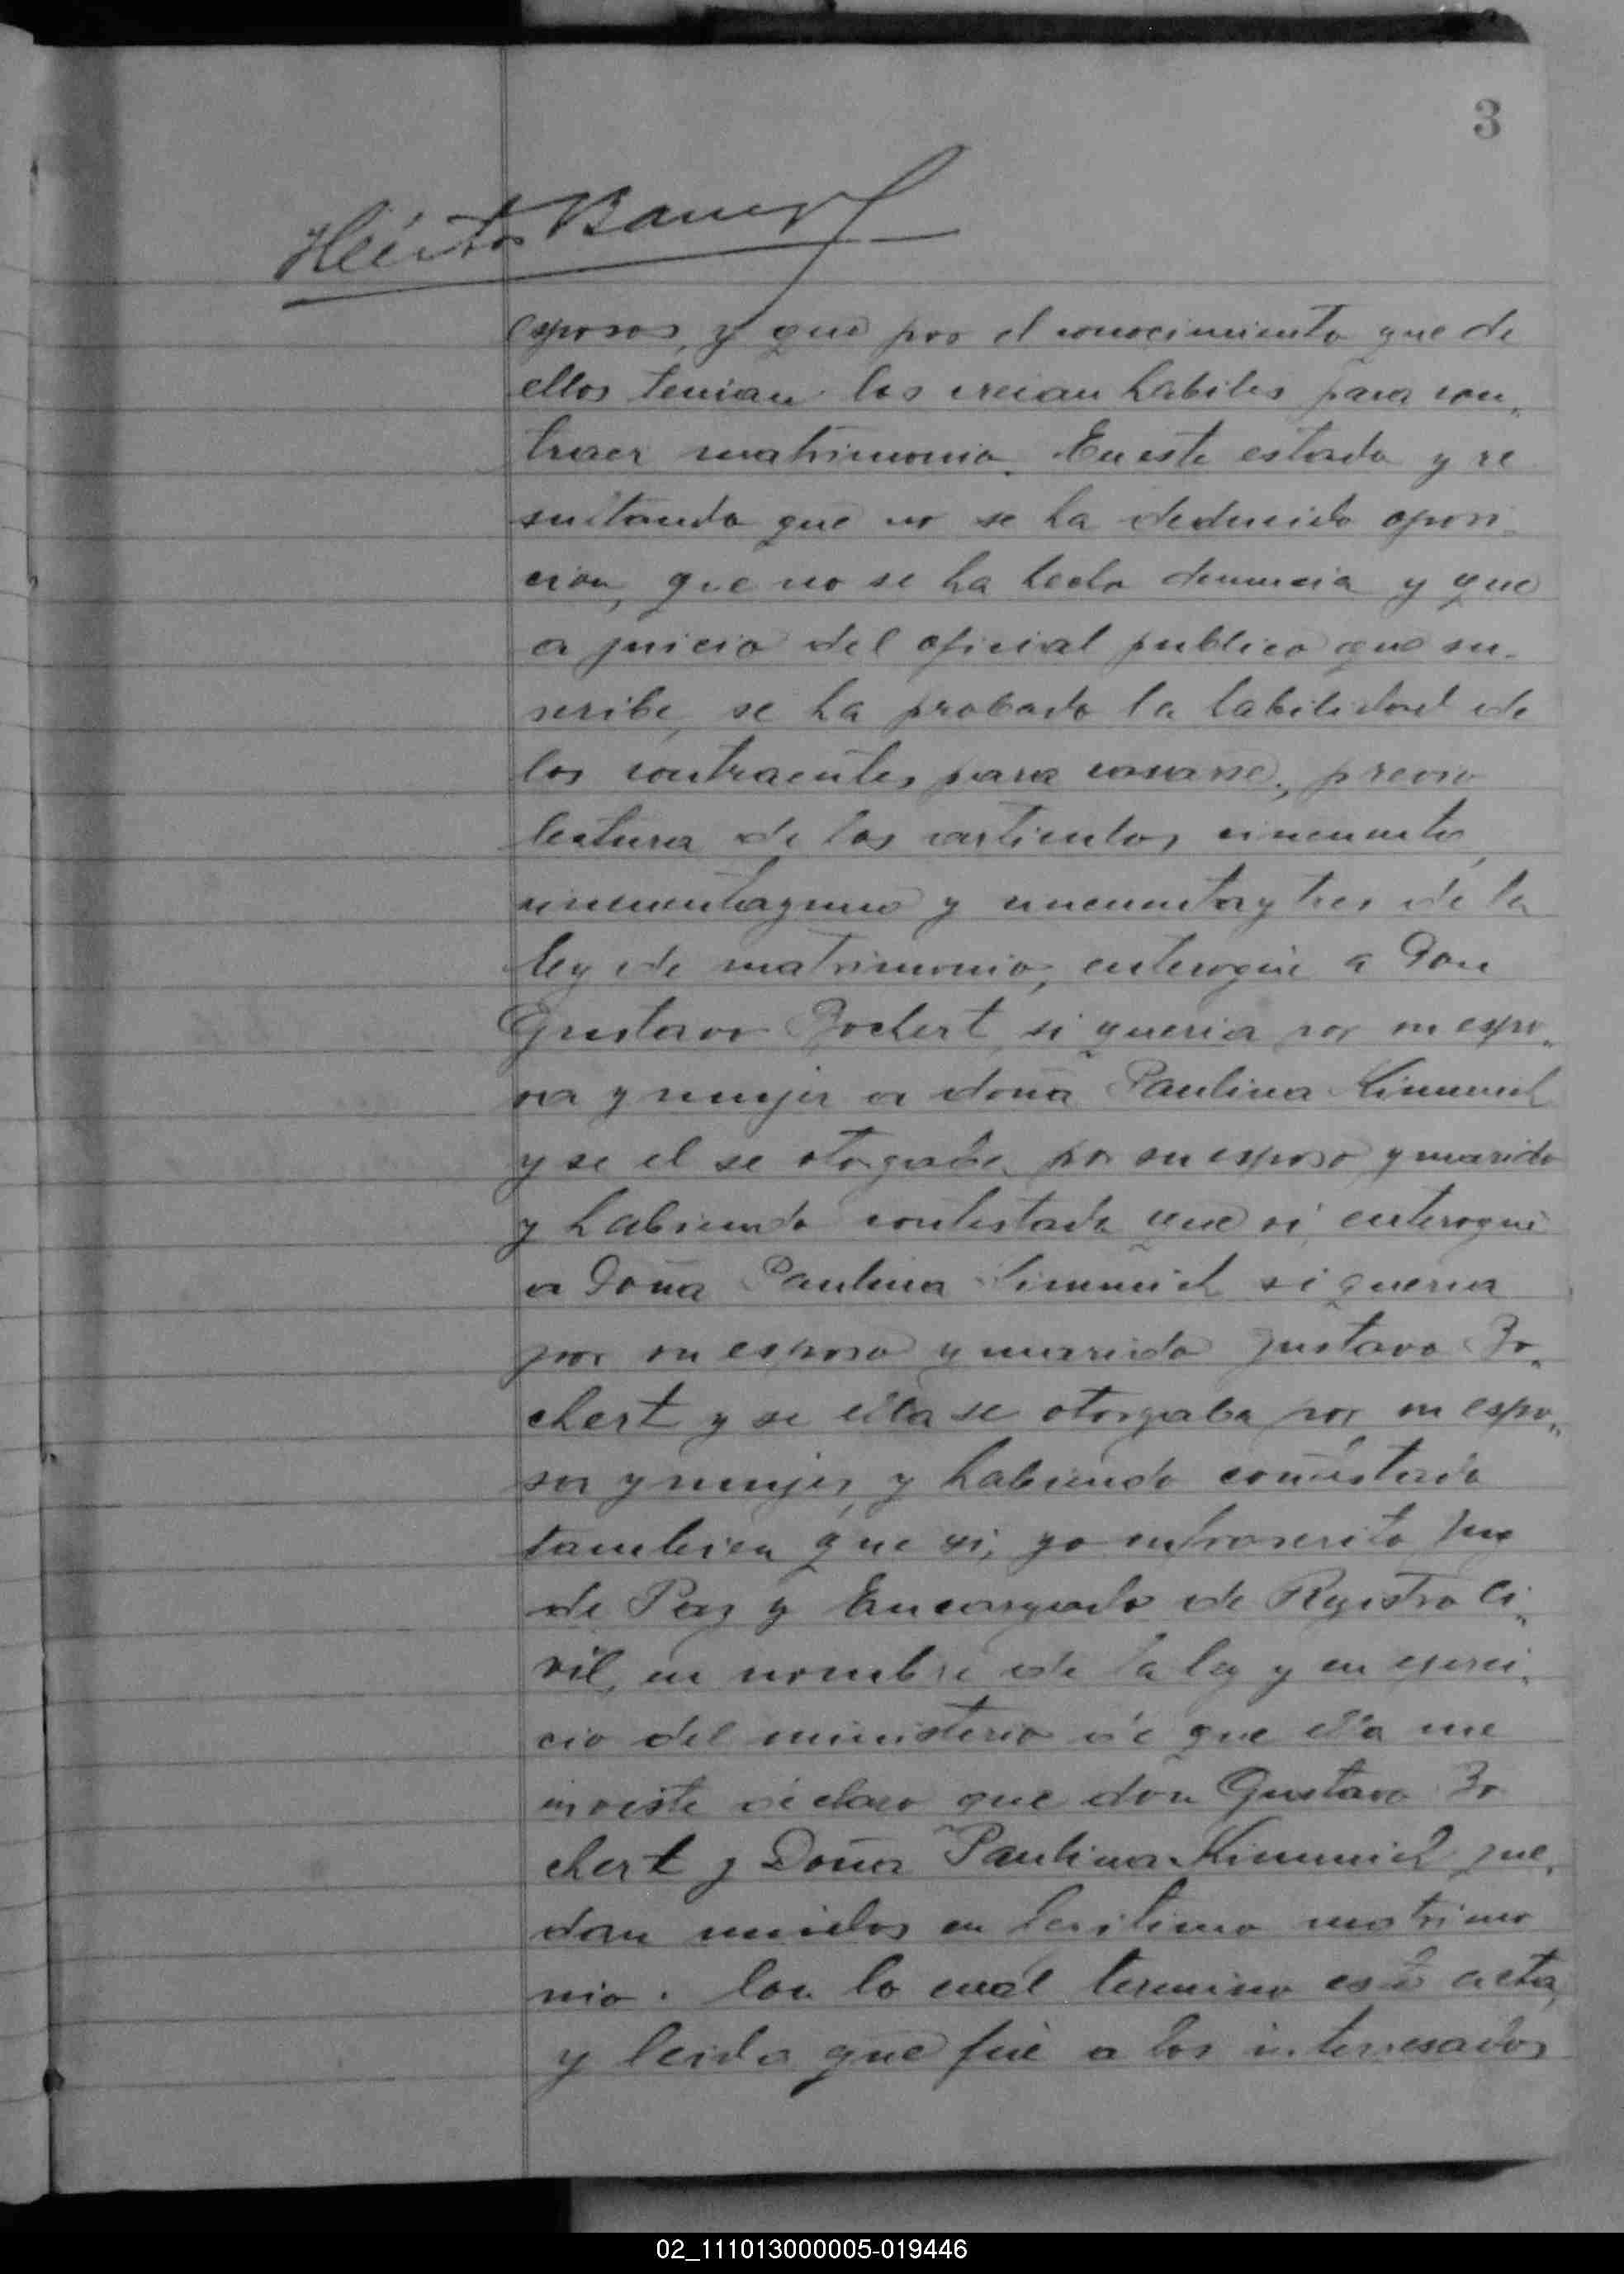 3
Héctor
esposos, y que por el conocimiento que de
ellos tenian los creian habiles para con„
traer matrimonio. En este estado y re
sultando que no se ha deducido oposi-
cion, que no se ha hecho denuncia y que
a juicio del oficial publico que su-
scribe, se ha probado la habilidad de
los contraentes para casarse, previo
lectura de los articulos cincuenta,
cincuentayuno y cincuentaytres de la
ley de matrimonio, enterogué a Don
Gustavo Bochert si queria por su espo„
sa y mujer a doña Paulina Kimmich
y se el se otorgaba por su esposo y marido
y habiendo contestado que si, enterogué
a Doña Paulina Kimmich si queria
por su esposo y marido Gustavo Bo„
chert y se ella se otorgaba por su espo„
sa y mujer, y habiendo contestado
tambien que si, yo infrascrito Juez
de Paz y Encargado de Registro Ci„
vil, en nombre de la ley y en ejerci„
cio del ministerio de que ella me
inviste declaro que don Gustavo Bo
chert y Doña Paulina Kimmich que„
dan unidos en lexitimo matrimo
nio. Con lo cual termino este acta,
y leida que fué a los interesados
02_111013000005-019446